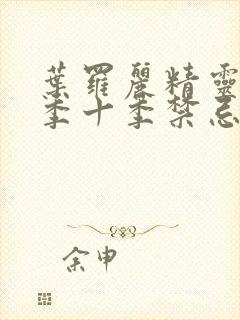 葉羅麗精靈
季十季禁忌
余申